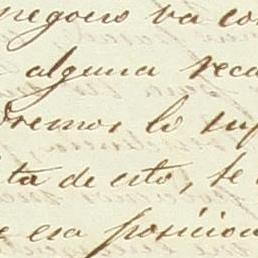 negocio va con
alguna reca
dremos lo sup
ta de esto, te
e esa posicion